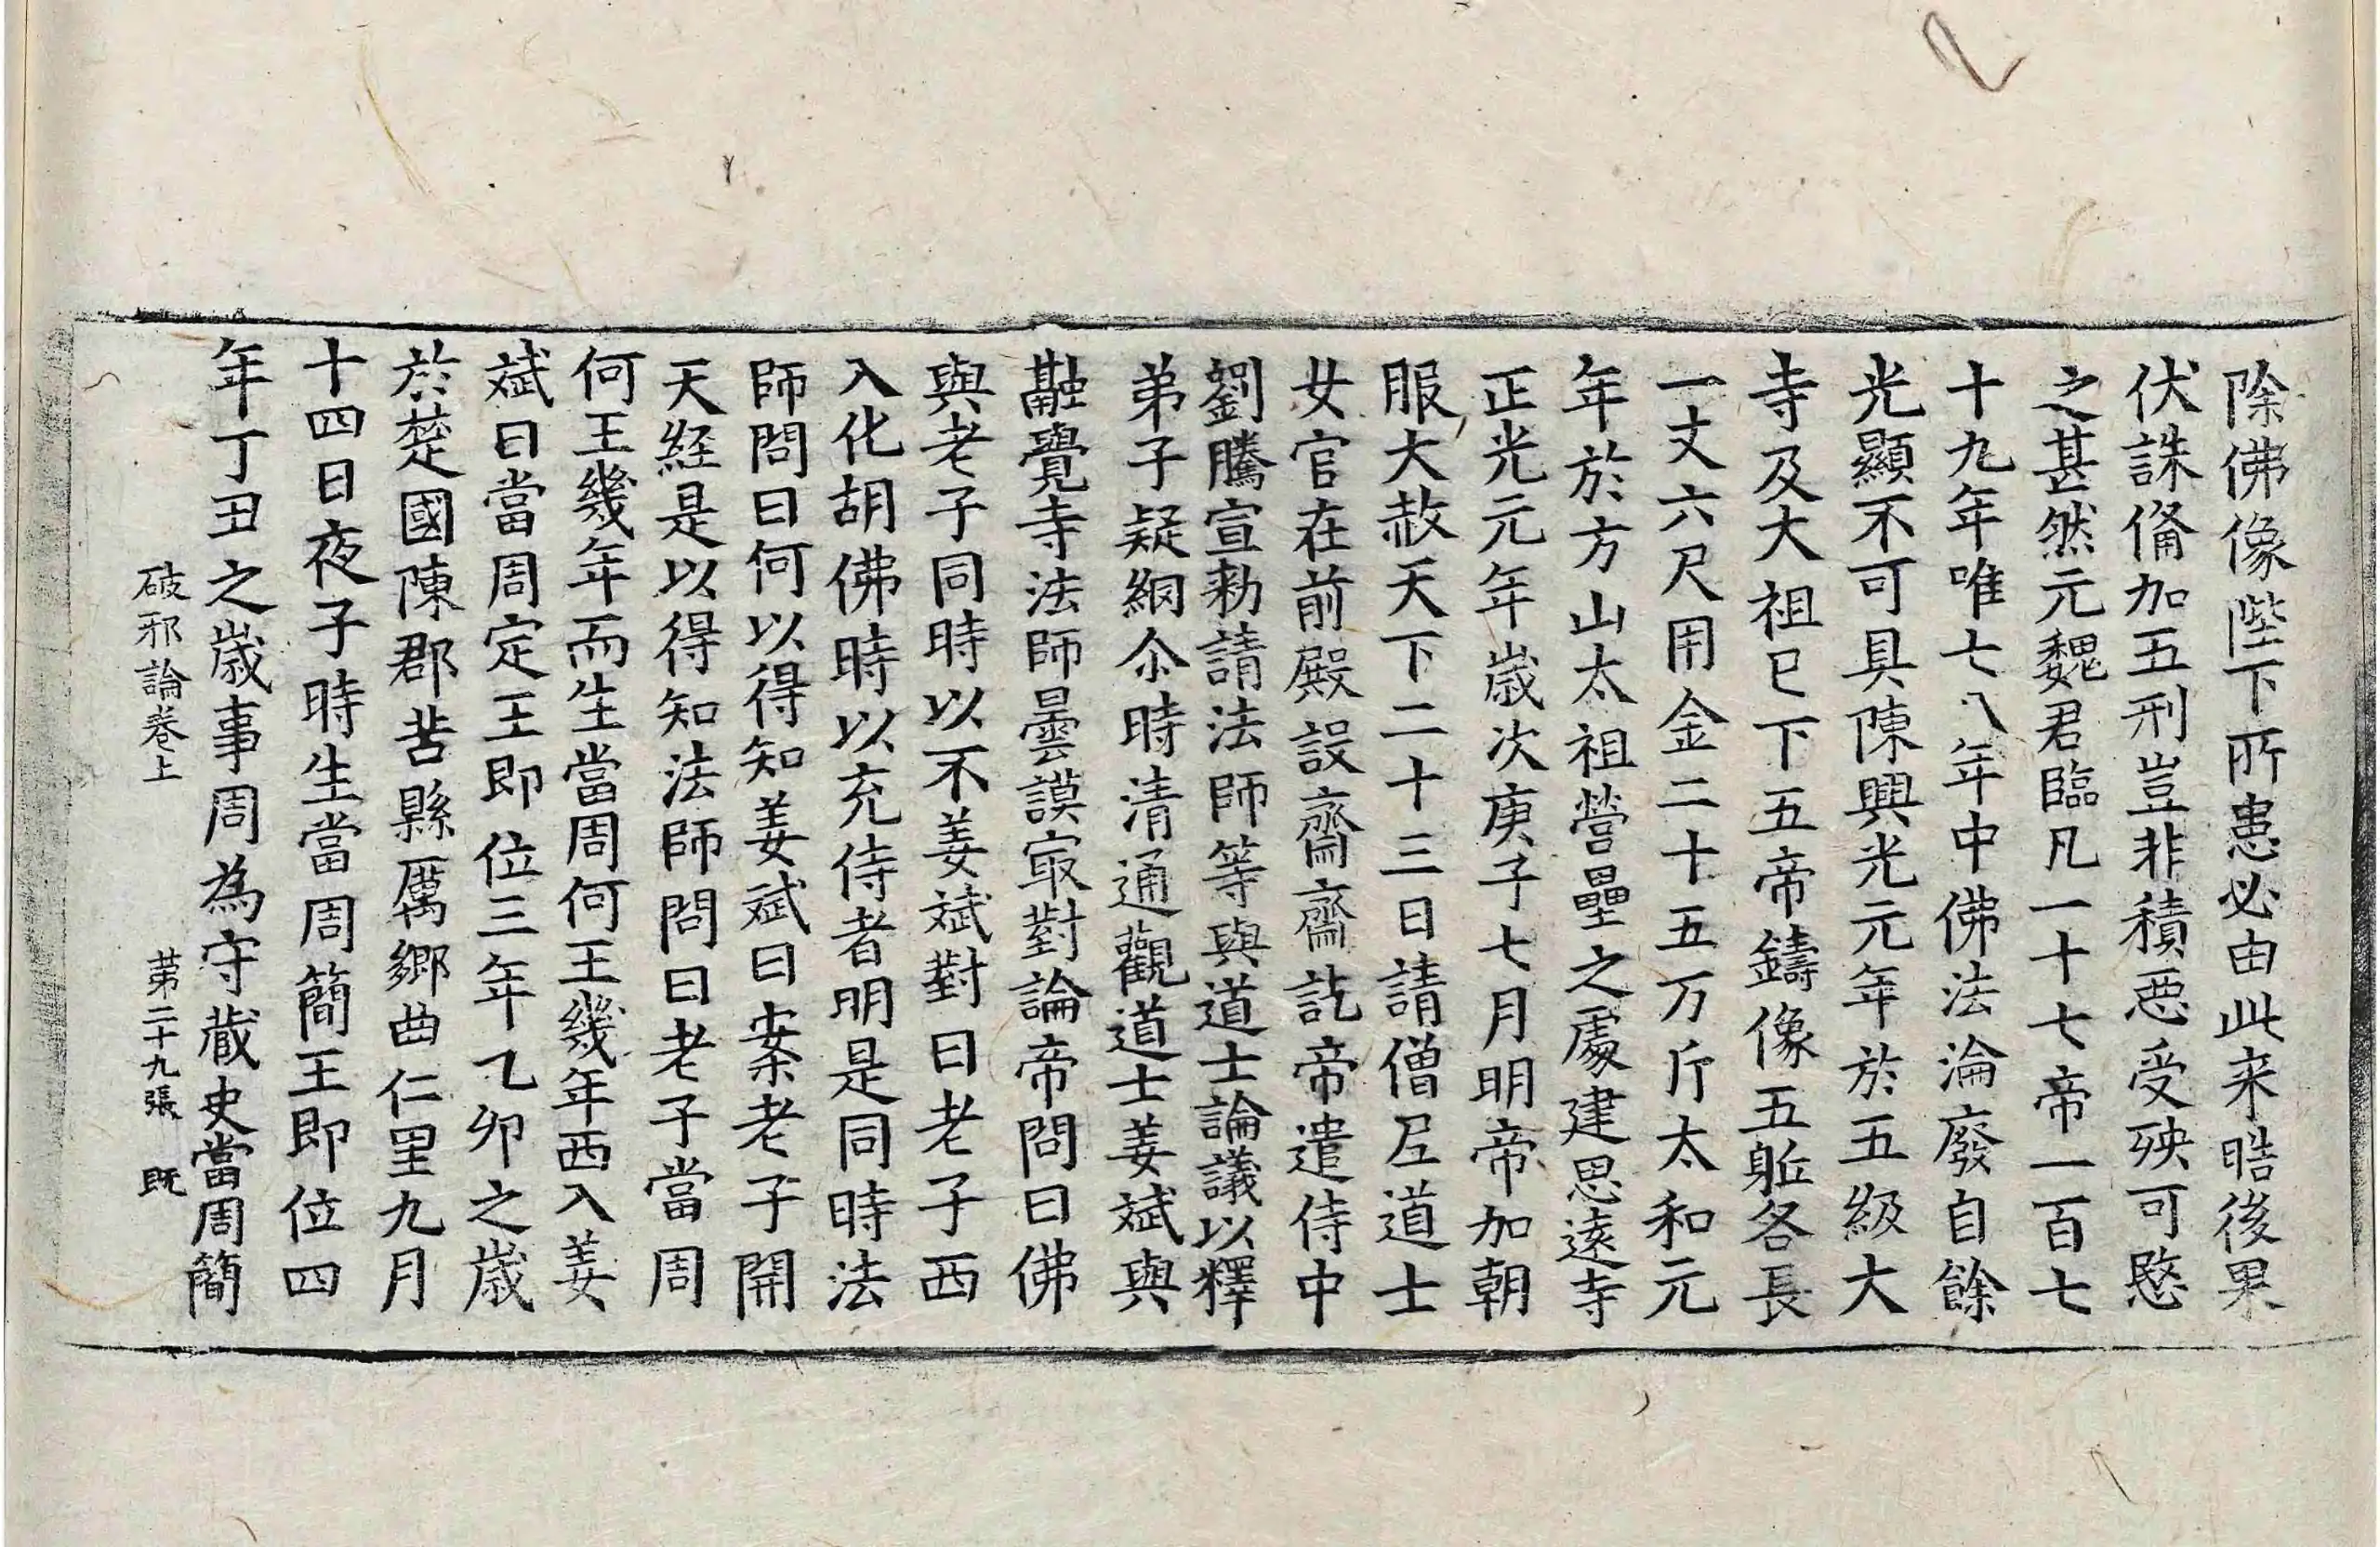 除佛像陛下所患必由此来晧後果
伏誅俻加五刑豈非積惡受殃可愍
之甚然元魏君臨凡一十七帝一百七
十九年唯七八年中佛法淪廢自餘
光顯不可具陳興光元年於五級大
寺及大祖已下五帝鑄像五軀各長
一丈六尺用金二十五万斤太和元
年於方山太祖營壘之處建思逺寺
正光元年歲次庚子七月明帝加朝
服大赦天下二十三日請僧尼道士
女官在前殿設齋齋訖帝遣侍中
劉騰宣勑請法師等與道士論議以釋
弟子疑網尒時清通觀道士姜斌與
融覺寺法師曇謨冣對論帝問曰佛
與老子同時以不姜斌對曰老子西
入化胡佛時以充侍者明是同時法
師問曰何以得知姜斌曰案老子開
天経是以得知法師問曰老子當周
何王幾年而生當周何王幾年西入姜
斌曰當周定王即位三年乙卯之歲
於楚國陳郡苦縣厲鄉曲仁里九月
十四日夜子時生當周簡王即位四
年丁丑之歲事周為守藏史當周簡
破邪論卷上 苐二十九張 既